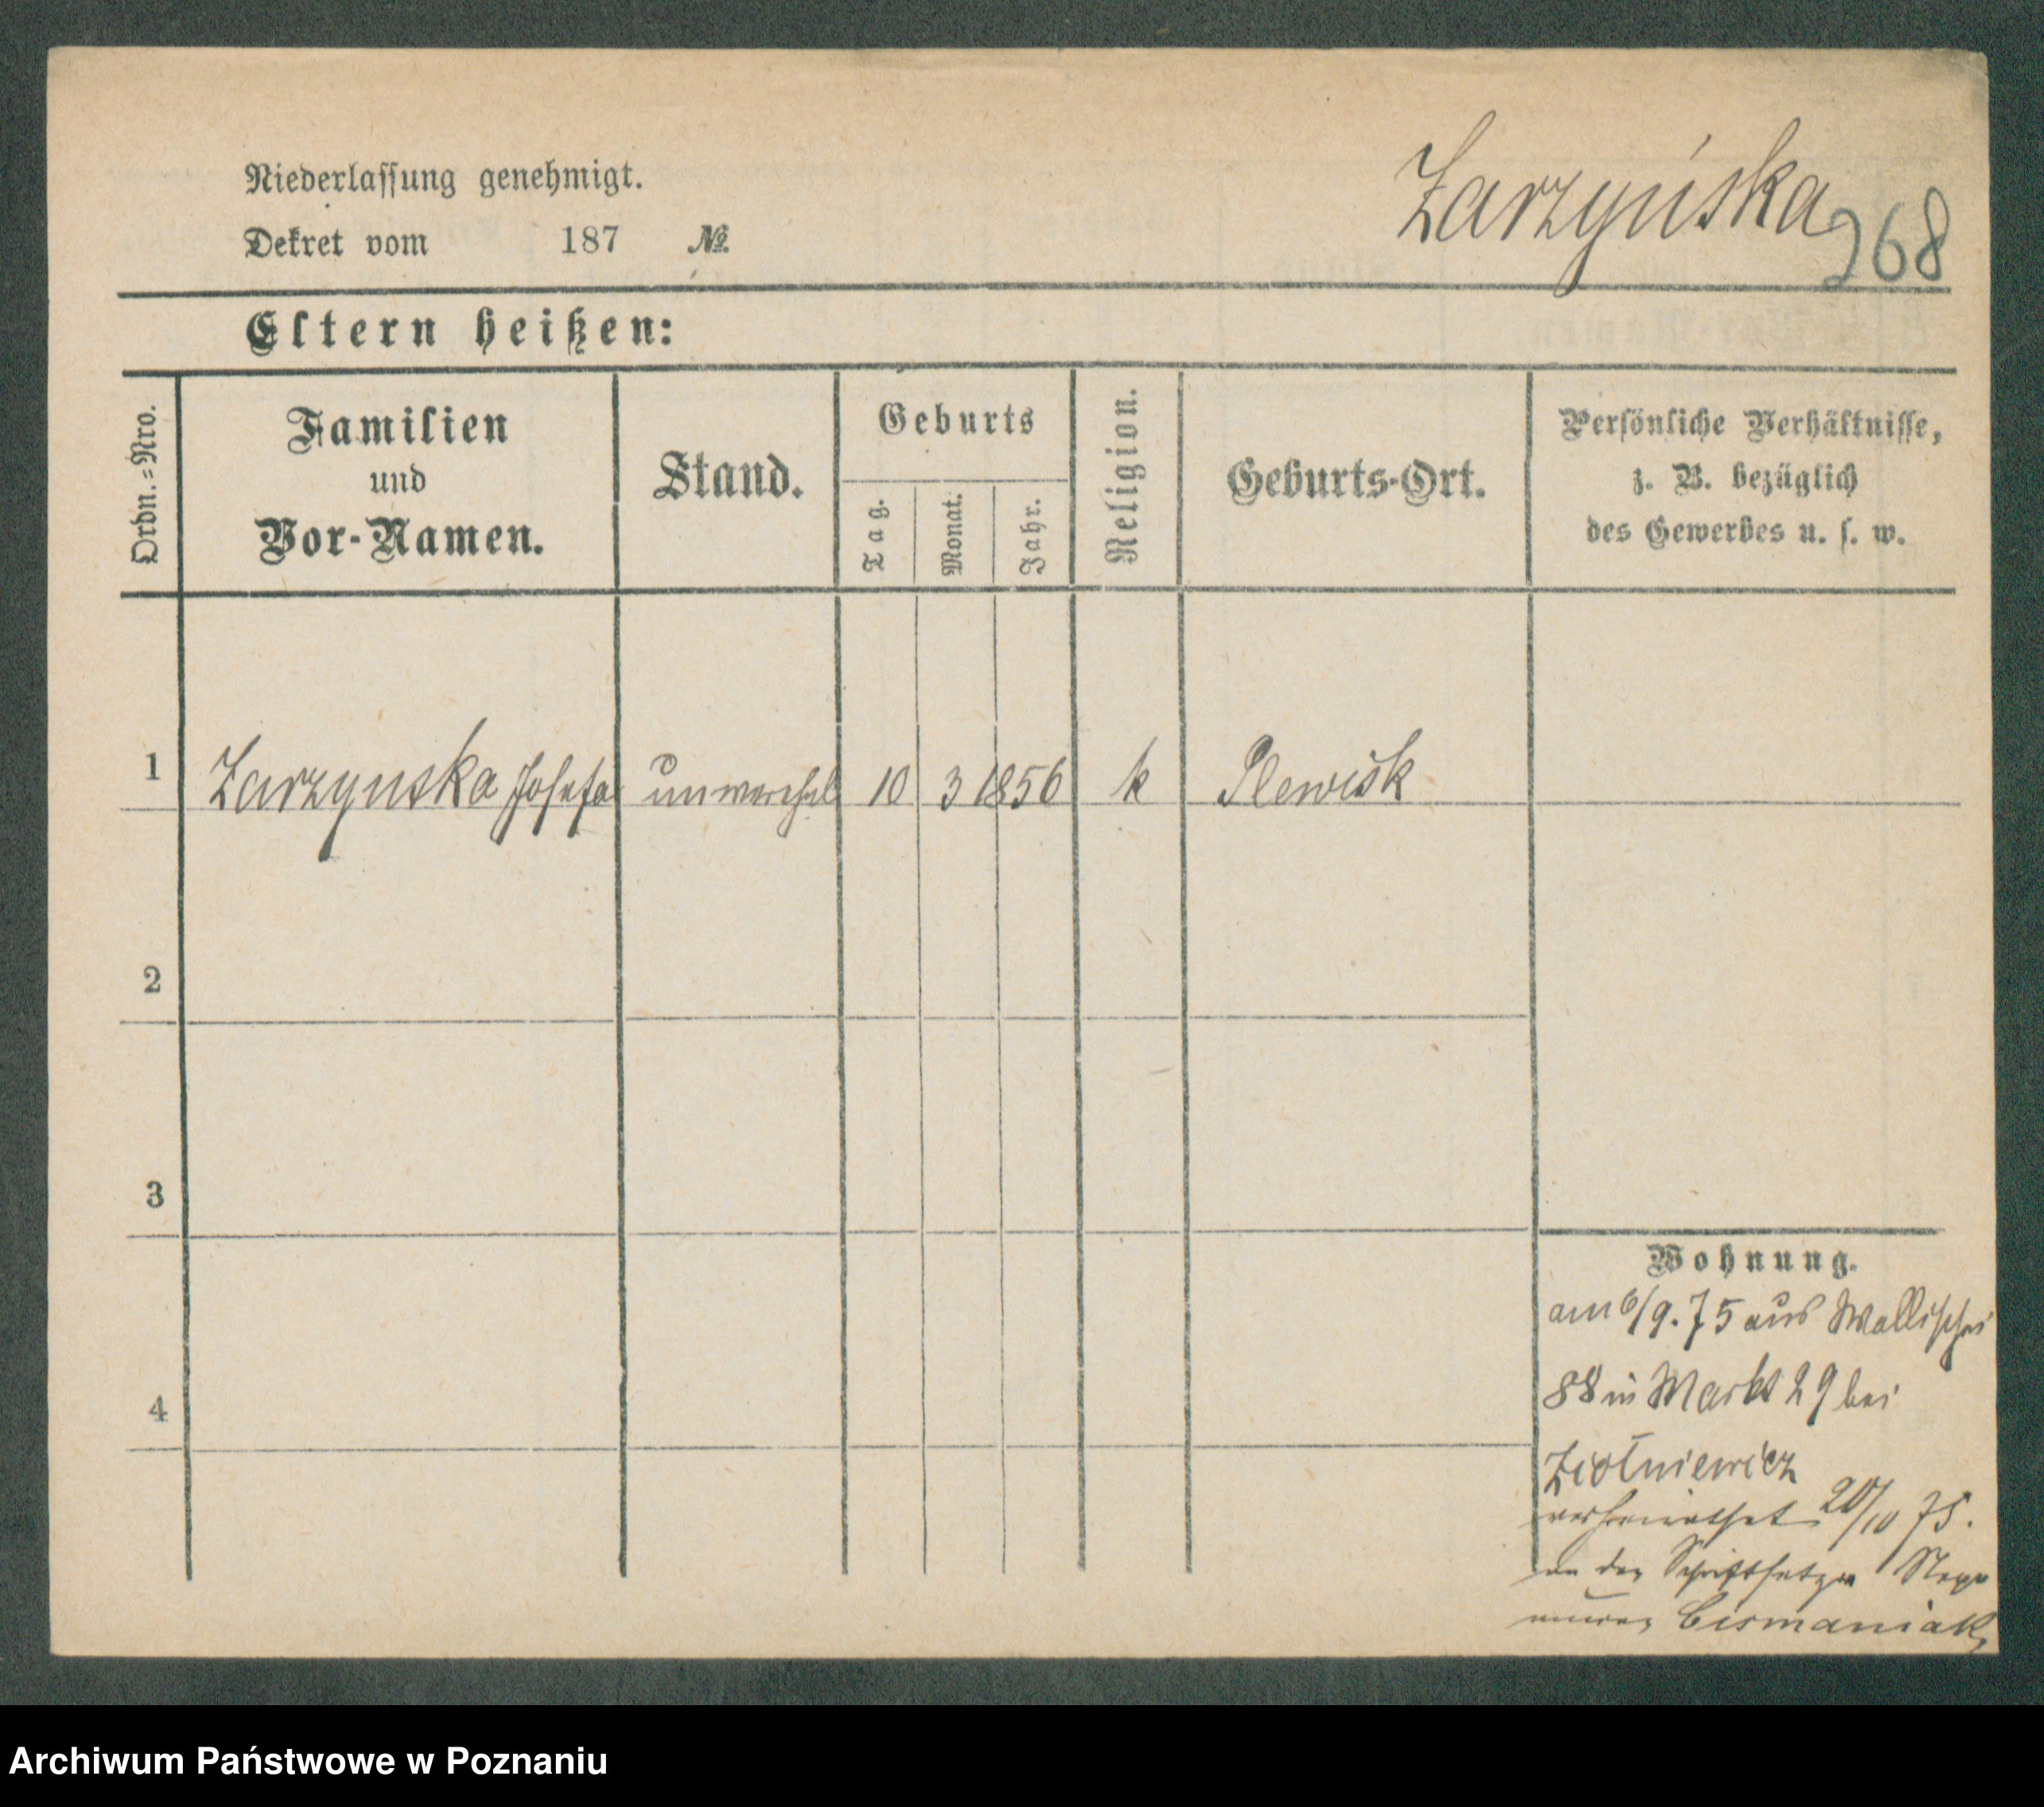 Niederlassung genehmigt.
Zarzyńska
268
Dekret vom 187 №
Eltern heißen:
Ordn.=Nro.
Familien
und
Vor-Namen.
Stand.
Geburts
Tag.
Monat.
Jahr.
Religion.
Geburts-Ort.
Persönliche Verhältnisse,
z. B. bezüglich
des Gewerbes u. s. w.
1 Zarzynska Josefa unverehel 10 3 1856 k Plewisk
2
3
4
Wohnung.
am 6/9. 75 aus Wallischei
88 in Markt 29 bei
verheirathet 20/10 75.
an den Schriftsetzer
Cismaniak
Archiwum Państwowe w Poznaniu